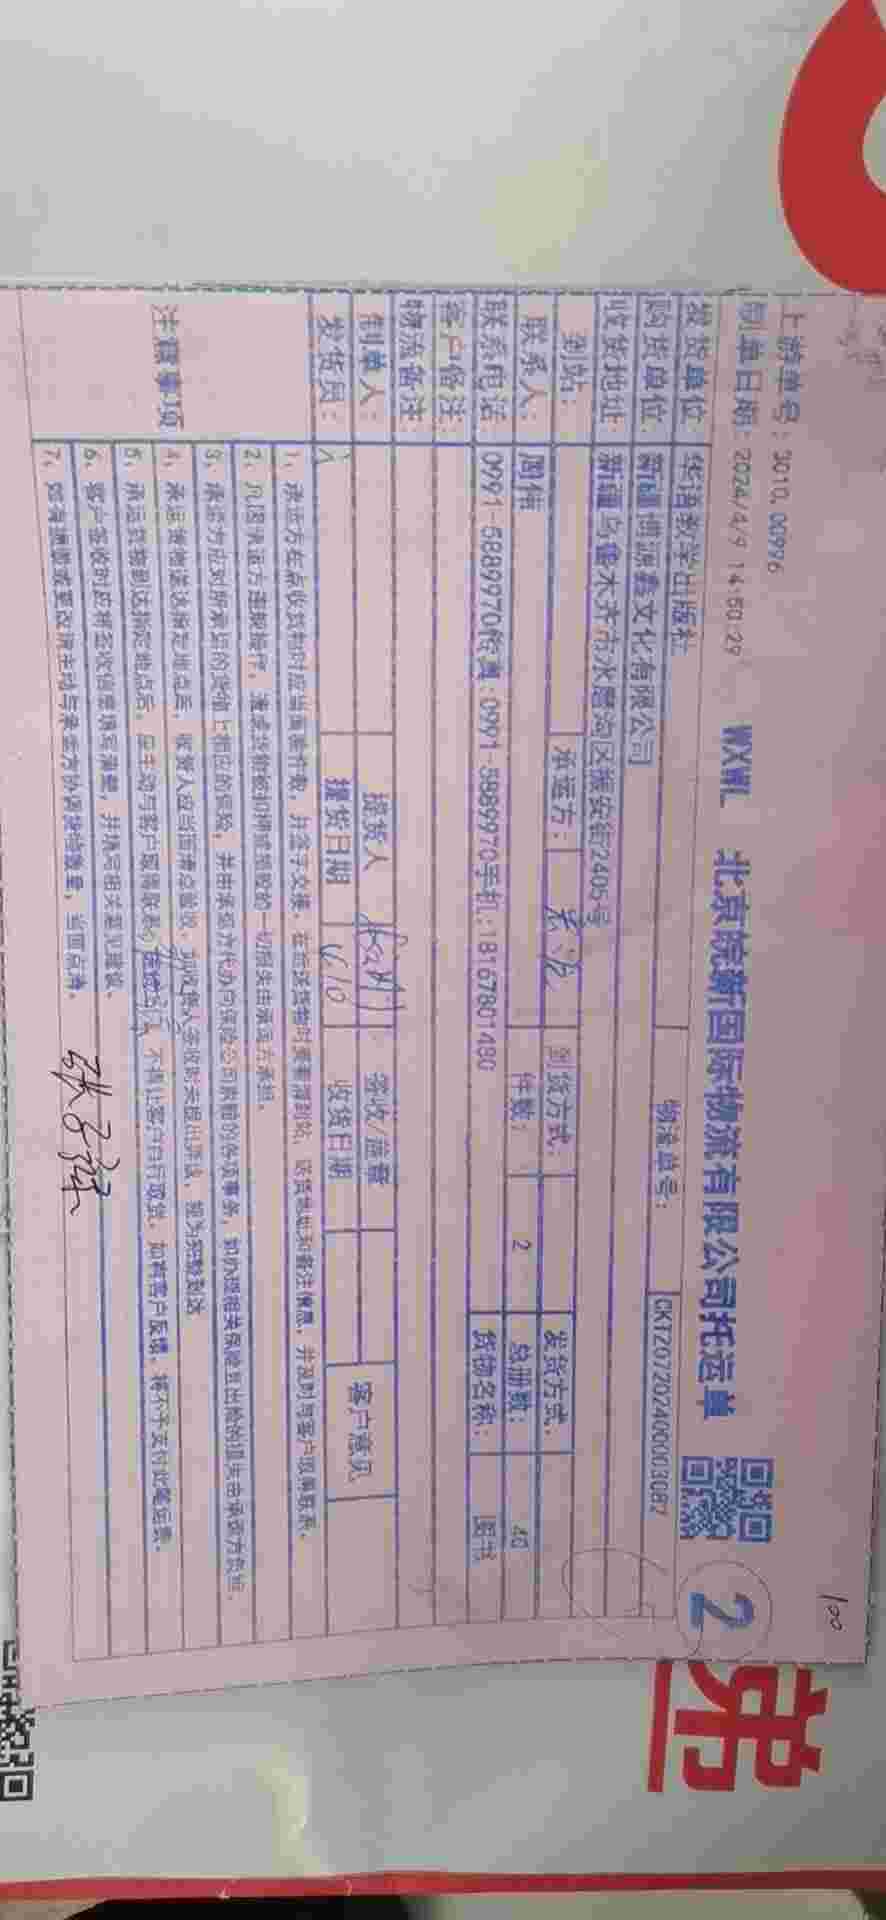 100
上游单号：3010.00996
制单日期：2024/4/9 14:50:29 WXWL 北京皖新国际物流有限公司托运单 2
发货单位 华语教学出版社 物流单号： CKTZ0720240000308
购货单位: 新疆博源鑫文化有限公司
收货地址: 新疆乌鲁木齐市水磨沟区振安街2405号
到站： 承运方： 到货方式: 发货方式:
联系人： 周伟 件数： 2 总册数： 40
联系电话 0991-5889970传真:0991-5889970手机:18167801480 货物名称: 图书
客户备注:
物流备注
制单人： 提货人 签收/盖章 客户意见
发货员： 提货日期 4/10 收货日期
注意事项
1、承运方在点收货物时应当面垂件数，并签字交接，在运送货物时要看清到站、送货地址和备注信息，并及时与客户联系。
2、凡因承运方违规操作，造成货物被扣押或损毁的一切损失由承运方承担。
3、承运方应对所承运的货物上相应的保险，并由承运方代办向保险公司索赔的各项事务，如办理相关保险其出险的损失由承运方负担。
4、承运货物送达指定地点后，收货人应当面清点签收，如收货人签收时未提出异议，视为完整到达
5、承运货物到达指定地点后，应主动与客户取得联系，不得让客户自行取货，如有客户反馈，将不予支付此笔运费。
6、客户签收时应将签收信息填写清楚，并填写相关意见建议。
7、
张子强
弟